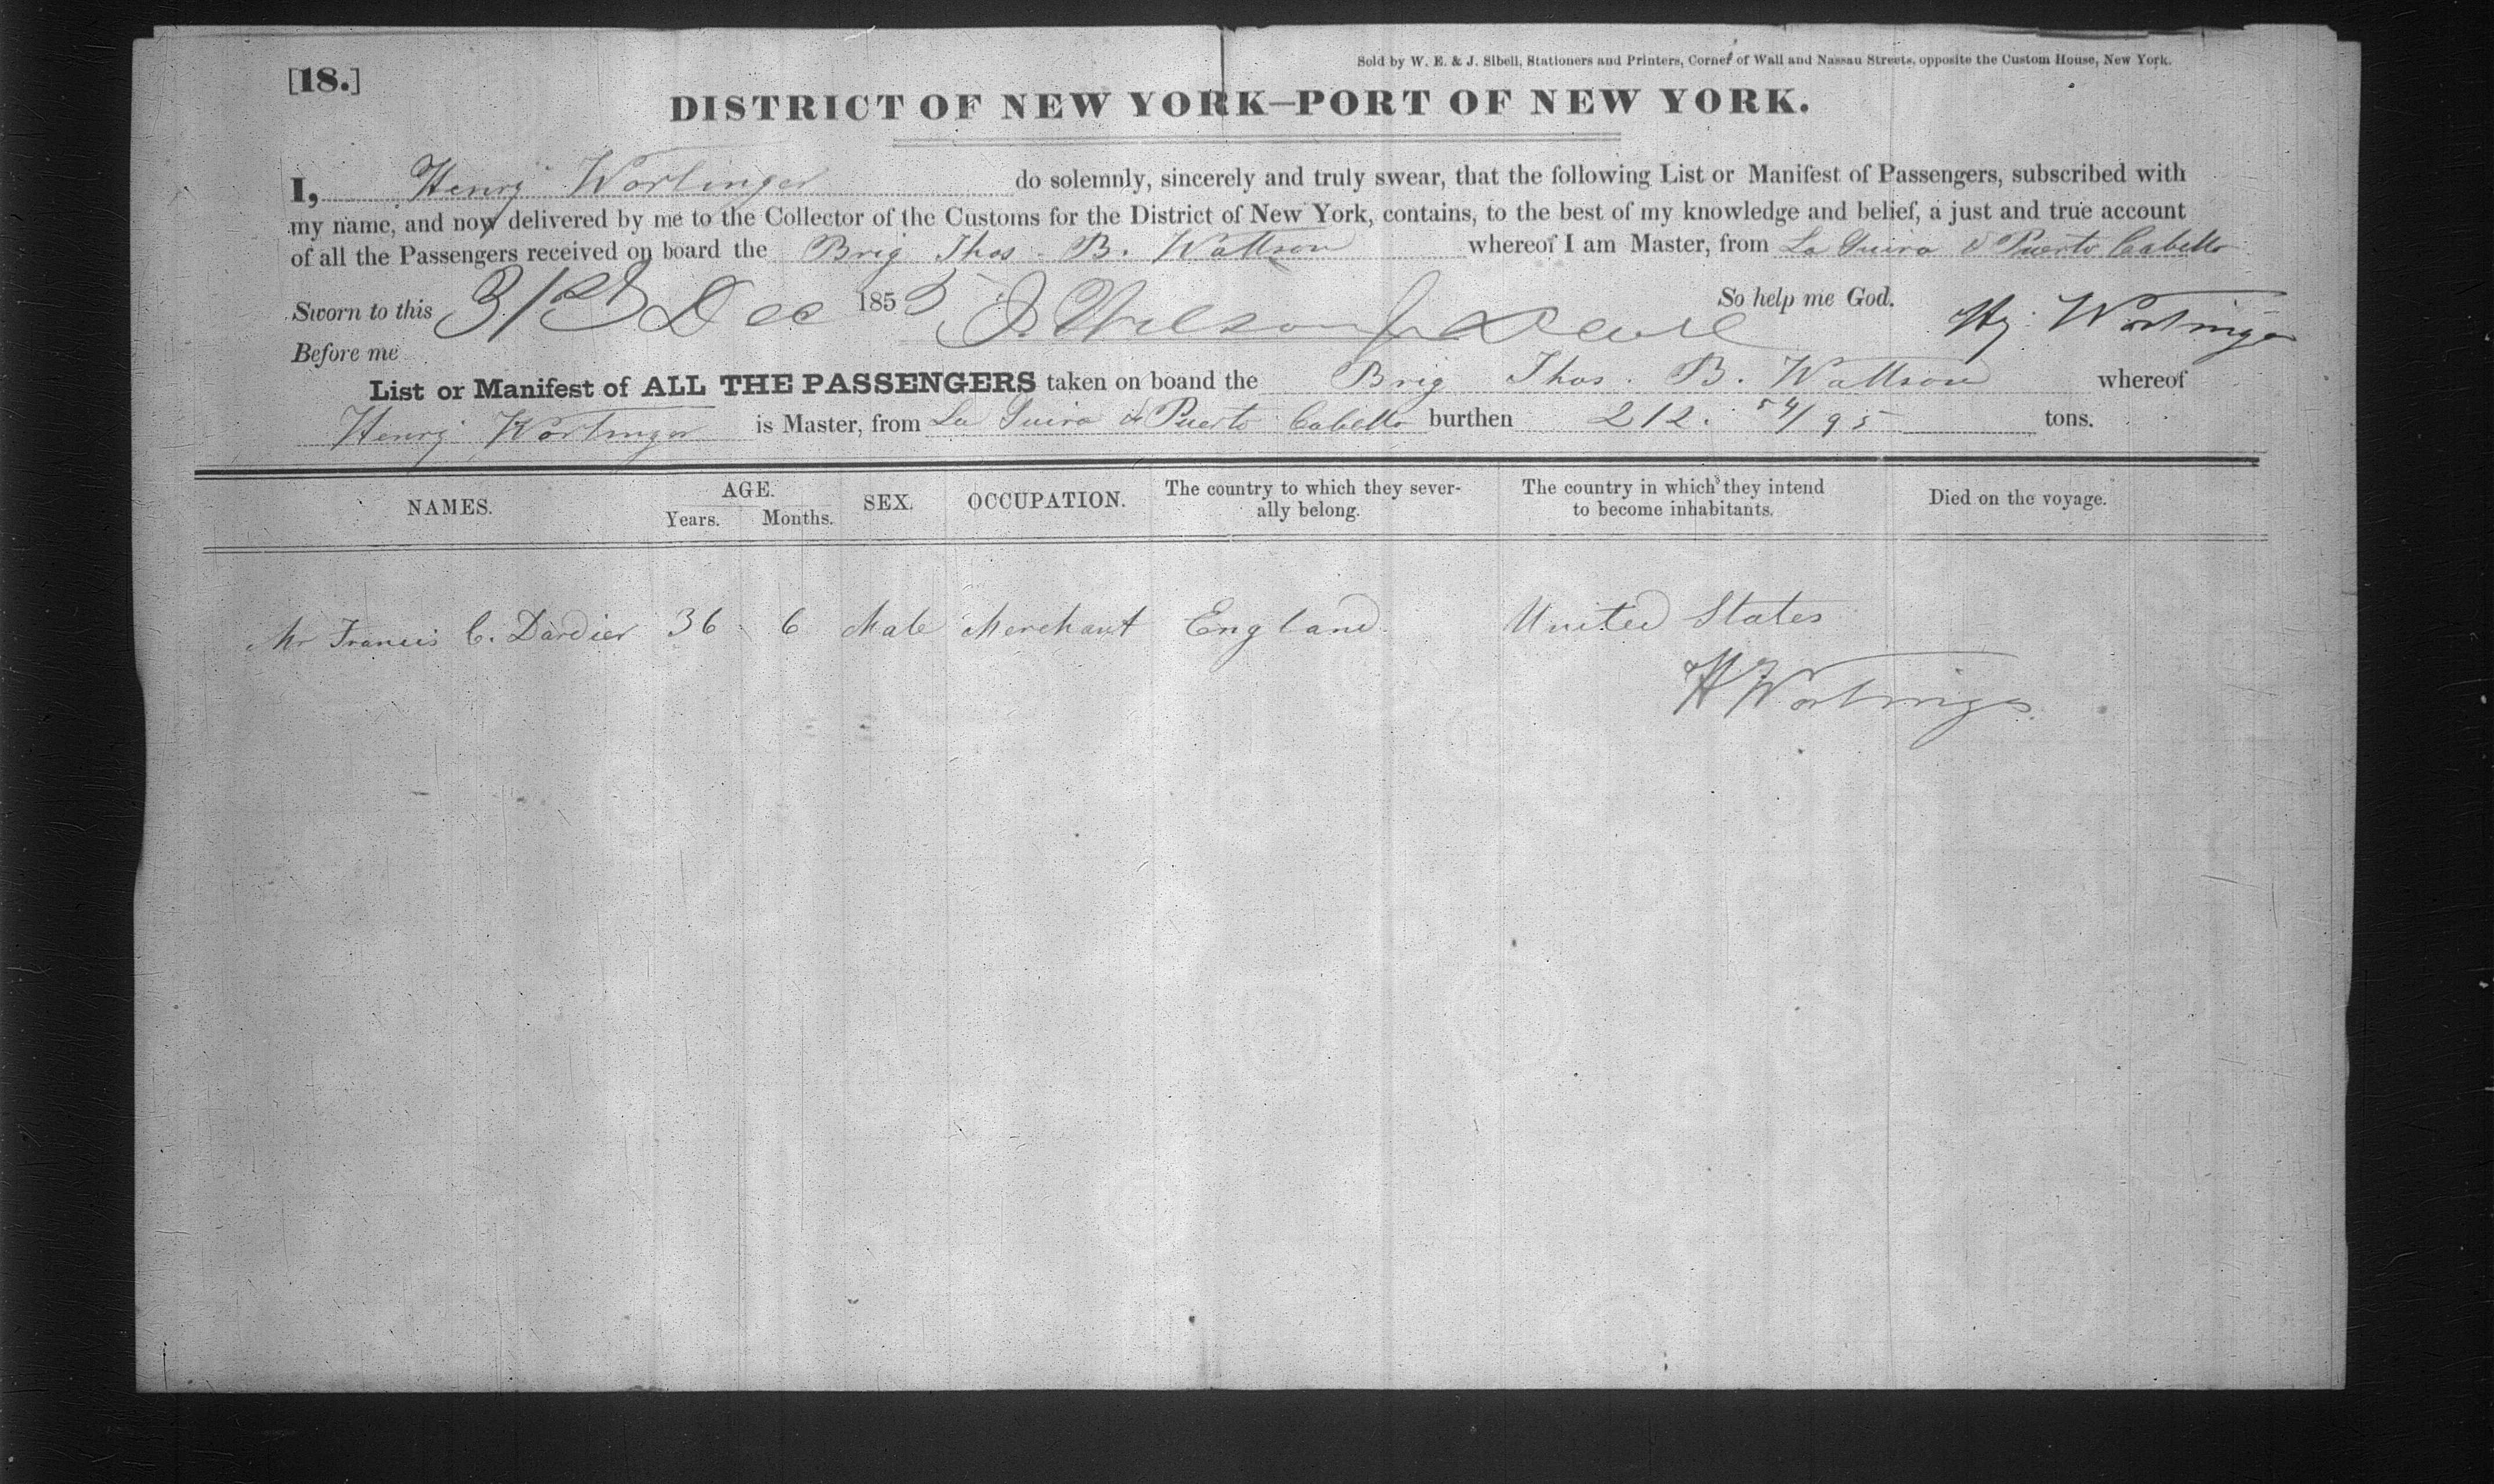 [18.]
Sold by W. E. & J. Sibell, Stationers and Printers, Corner of Wall and Nassau Streets, opposite the Custom House, New York.
DISTRICT OF NEW YORK—PORT OF NEW YORK.
I, Henry Wortinger do solemnly, sincerely and truly swear, that the following List or Manifest of Passengers, subscribed with
my name, and now delivered by me to the Collector of the Customs for the District of New York, contains, to the best of my knowledge and belief, a just and true account
of all the Passengers received on board the Brig Thos. B. Wattson whereof I am Master, from La Guira & Puerto Cabello
Sworn to this 31st Dec 1855 So help me God. Hy. Wortinger
Before me
List or Manifest of ALL THE PASSENGERS taken on boand the Brig Thos. B. Wattson whereof
Henry Wortinger is Master, from La Guira & Puerto Cabello burthen 212. 54/95 tons.
NAMES. AGE. SEX. OCCUPATION. The country to which they sever- The country in which they intend Died on the voyage.
Years. Months. ally belong. to become inhabitants.
Mr Francis C. Dardier 36 6 Male Merchant England United States
H Wortinger